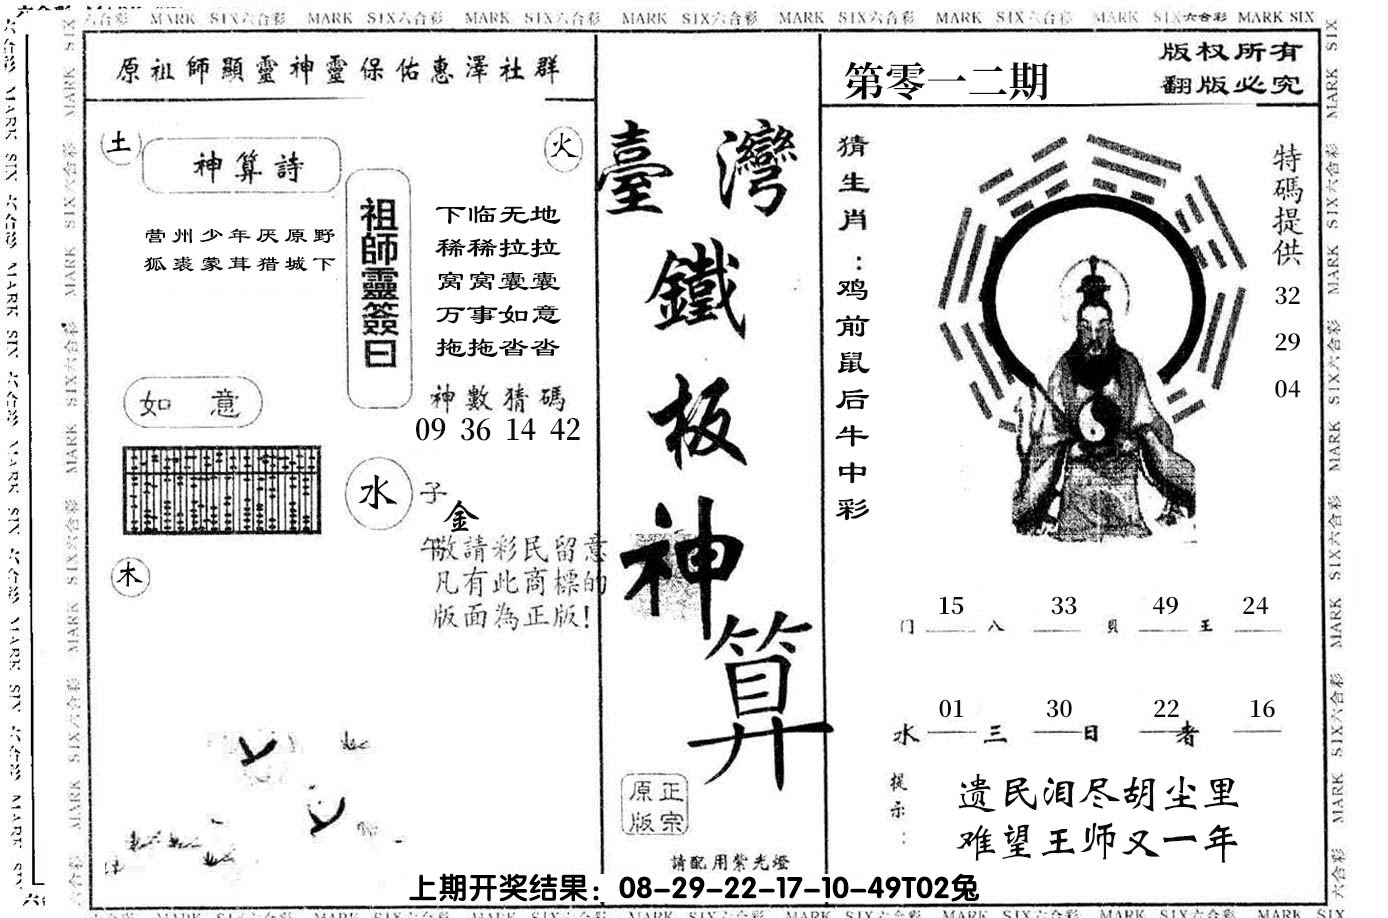 六合彩 MARK SIX六合彩 MARK SIX六合彩 MARK SIX六合彩 MARK SIX六合彩 MARK SIX六合彩 MARK SIX六合彩 MARK SIX六合彩 MARK SIX
原祖師顯靈神靈保佑惠澤社群
土
神算詩
火
营州少年厌原野
狐裘蒙茸猎城下
祖師靈簽曰
下临无地
稀稀拉拉
窝窝囊囊
万事如意
拖拖沓沓
神數猜碼
09 36 14 42
如意
水
子
金
午
敬請彩民留意
凡有此商標的
版面為正版!
木
臺灣
鐵
板
神
算
正宗
原版
請配用紫光燈
第零一二期
版权所有
翻版必究
猜生肖：鸡前鼠后牛中彩
特碼提供
32
29
04
15 33 49 24
门 八 貝 王
01 30 22 16
水 三 日 者
提示：
遗民泪尽胡尘里
难望王师又一年
上期开奖结果：08-29-22-17-10-49T02兔